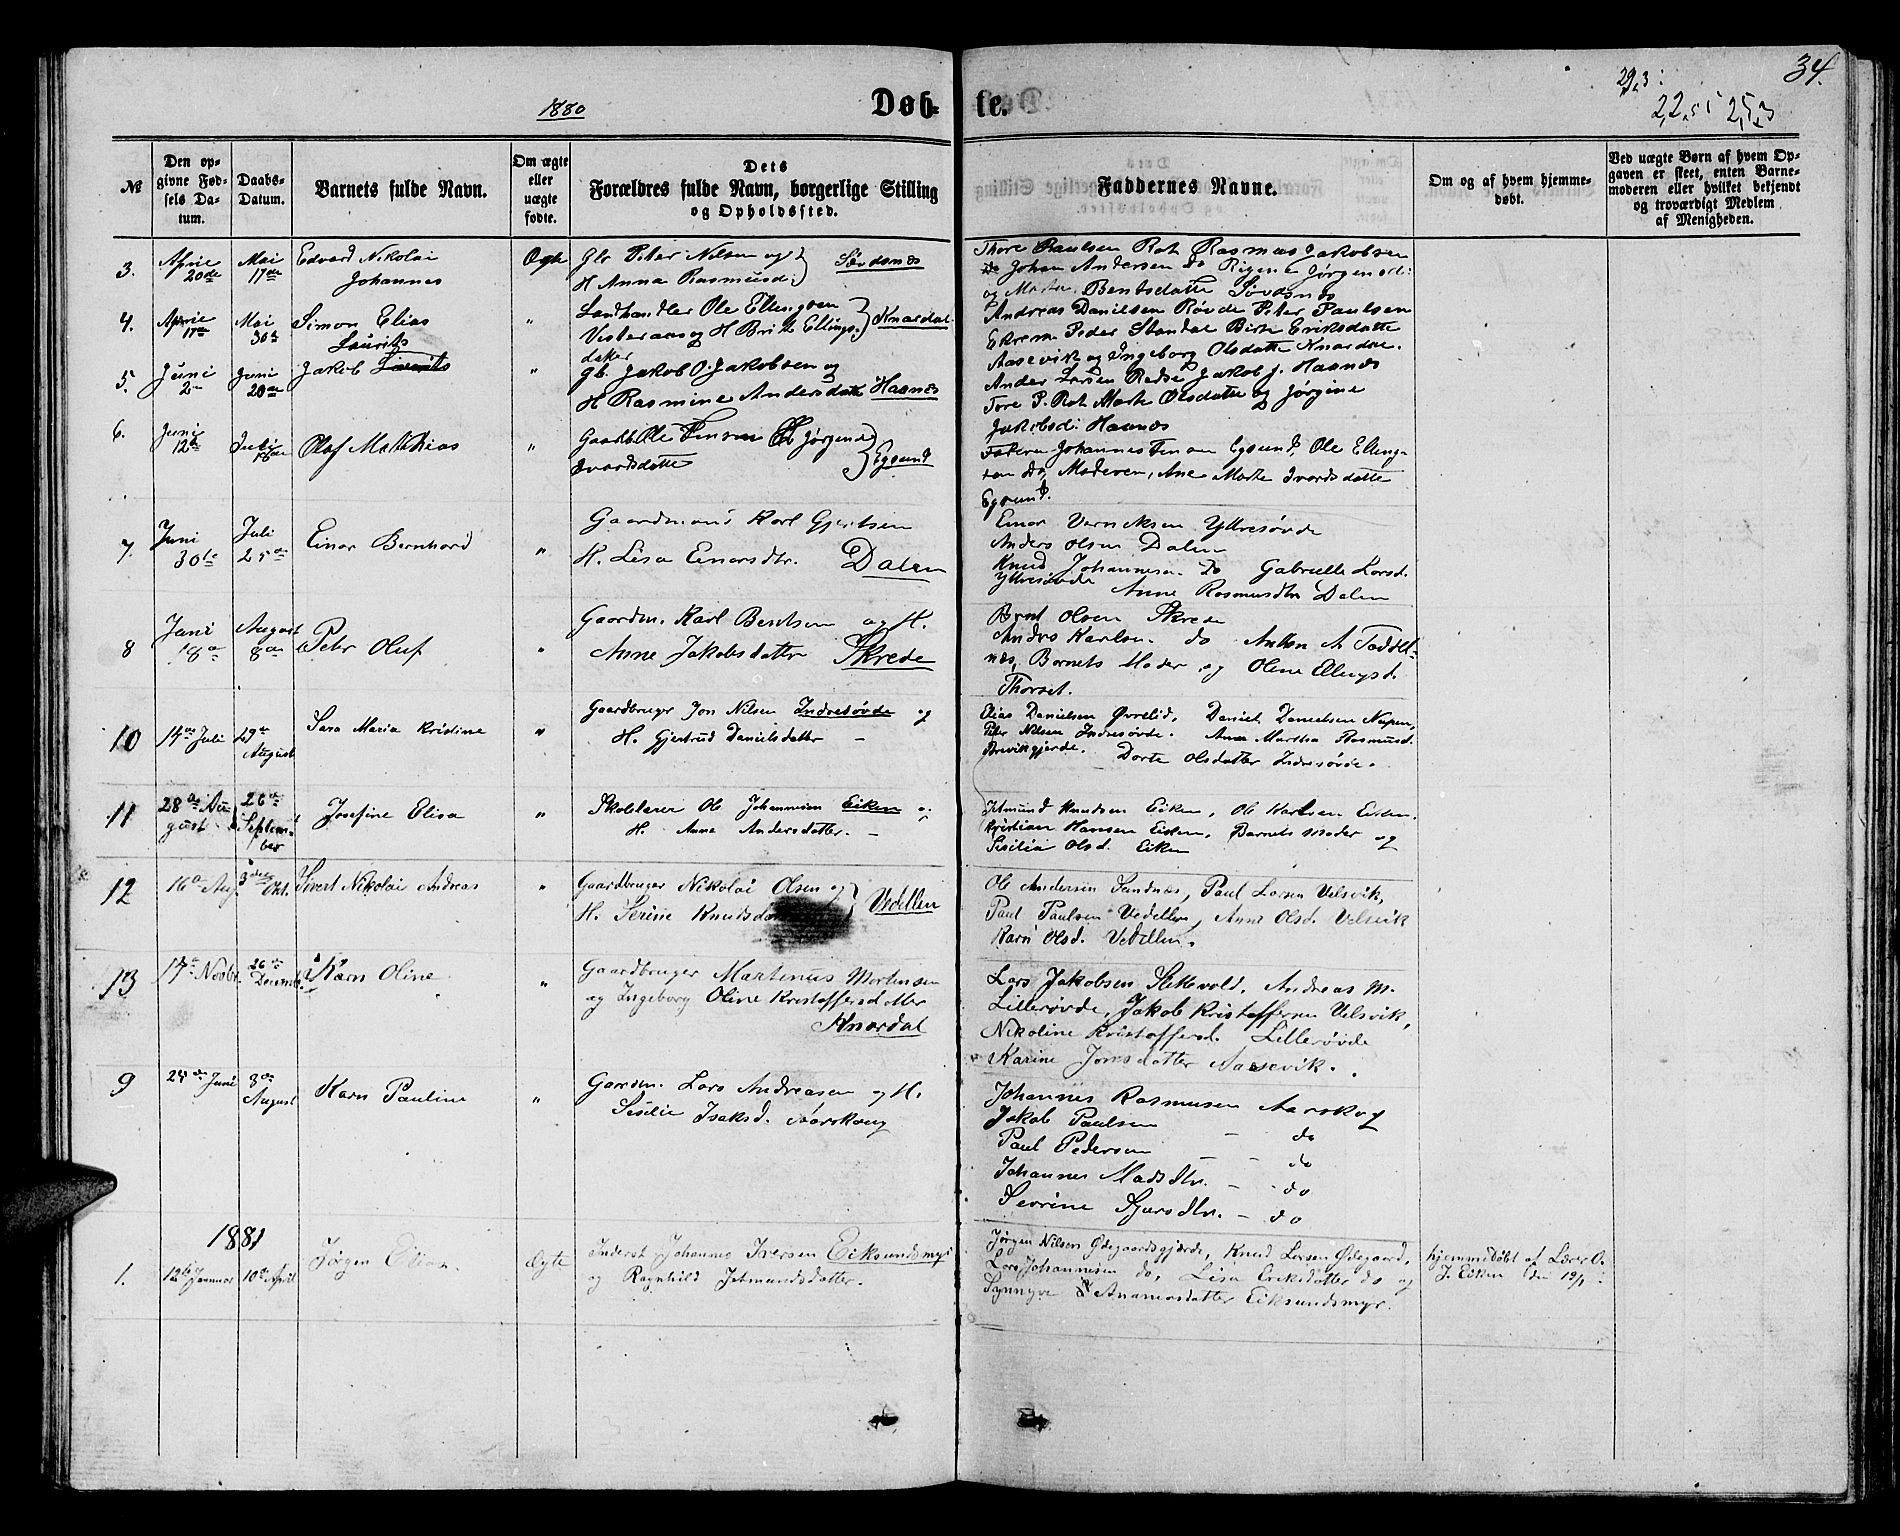 34.
29,3:
22,55 25,3
1880
Døb-
te.
№
Den op-
givne Fød-
sels Da-
tum.
Daabs-
Datum.
Barnets fulde Navn.
Om ægte
eller
uægte
fødte.
Dets
Forældres fulde Navn, borgerlige Stilling
og Opholdssted.
Faddernes Navne.
Om og af hvem hjemme-
døbt.
Ved uægte Børn af hvem Op-
gaven er skeet, enten Barne-
moderen eller hvilket bekjendt
og troværdigt Medlem
af Menigheden.
3.
April
20de
Mai
17de
Edvard Nikolai
Johannes
Ægte
Gbr Peter Nilsen og
H Anna Rasmusd:
Søvdsnes
Thore Paulsen Rot Rasmus Jakobsen
do Johan Andersen do Jørgensd:
og Marte Bentsdatte Søvdsnes
4.
April
17de
Mai
30te
Simon Elias
Laurits
"
Landhandler Ole Ellingsen
Vesteraas og H Brite Ellings-
datter
Knardal
Andreas Danielsen Røvde Peter Paulsen
Ekrem Peder Standal Birte Eriksdatte
Aasevik og Ingeborg Olsdatte Knardal.
5.
Juni
2de
Juni
20de
Jakob Laurits
"
Gb. Jakob O. Jakobsen og
H Rasmine Andersdatte Haanæs
Anders Larsen Jakob J. Haanæs
Tore P. Rot Marte Olsdatte og Jørgine
Jakobsd: Haanæs
6.
Juni
12te
Juli
18de
Olaf Mathias
"
Jørgine
Ivarsdatte
Egsund
Faderen Johannes Egsund, Ole Elling-
sen do, Moderen, Ane Marte Ivarsdatte
Egsund.
7.
Juni
30te
Juli
25de
Einar Bernhard
"
Gaardmand Karl Gjertsen
H. Lisa Einarsdtr. Dalen
Einar Yttresøvde
Anders Olsen Dalen
Knud Johannesen do Gabrielle Larsd.
Yttresøvde Anne Rasmusdtr Dalen
8
Juni
18de
August
8de
Peter Oluf
"
Gaardm. Karl Bentsen og H.
Anne Jakobsdatter Skrede
Bernt Olsen Skrede
Andres Karlsen do Anton A
næs, Barnets Moder og Oline Ellingsd.
Thorset.
10
14de Juli
29de
August
Sara Maria Kristine
"
Gaardbruger Jon Nilsen Indresøvde og
H. Gjertrud Danielsdatter –
Elias Danielsen Øvrelid, Daniel Danielsen Nupen,
Peter Nilsen Indresøvde. Anne Martha Rasmusd.
Brevikgjerde. Dorte Olsdatter Indresøvde.
11
28de Au-
gust
26de
Septem-
ber
Josefine Elisa
"
Skolelærer Ole Johannesen Eiken og
H. Anna Andersdatter. –
Jetmund Knudsen Eiken, Ole Karlsen Eiken.
Kristian Hansen Eiken, Barnets Moder og
Sesilia Olsd. Eiken
12
16de Aug.
3die Okt.
Sivert Nikolai Andreas
"
Gaardbruger Nikolai Olsen og
H. Serine Knudsda
Vedellen
Ole Andersen Sandnæs, Paul Larsen Velsvik,
Paul Paulsen Vedellen, Anne Olsd. Velsvik
Karn Olsd. Vedellen.
13
17de Novbr.
26de
Decemb.
Karn Oline
"
Gaardbruger Martinus Mortensen
og Ingeborg Oline Kristoffersdatter
Knardal
Lars Jakobsen Sekevold, Andreas M.
Lillerøvde, Jakob Kristoffersen Velsvik,
Nikoline Kristoffersd. Lillerøvde
Karine Jonsdatter Aasevik.
9
24de Juni
8de
August
Karn Pauline
"
Gaardm. Lars Andreasen og H.
Sesilie Isaksd. Aarskoug
Johannes Rasmusen Aarskog
Jakob Paulsen – do
Paul Pedersen – – do
Johannes Madsdtr. – do
Severine Sjursdtr. – do
1881
1.
12te Januar
10de April
Jørgen Elias.
Ægte
Inderst Johannes Iversen Eiksundsmyr
og Ragnhild Jetmundsdatter.
Jørgen Nilsen Ødegaardsgjærde, Knud Larsen Ødegaard,
Lars Johannesen do, Lisa Eriksdatter do og
Synnyve Ananiasdatter Eiksundsmyr.
hjemmedøbt af Lærer O.
J. Eiken den 19/1